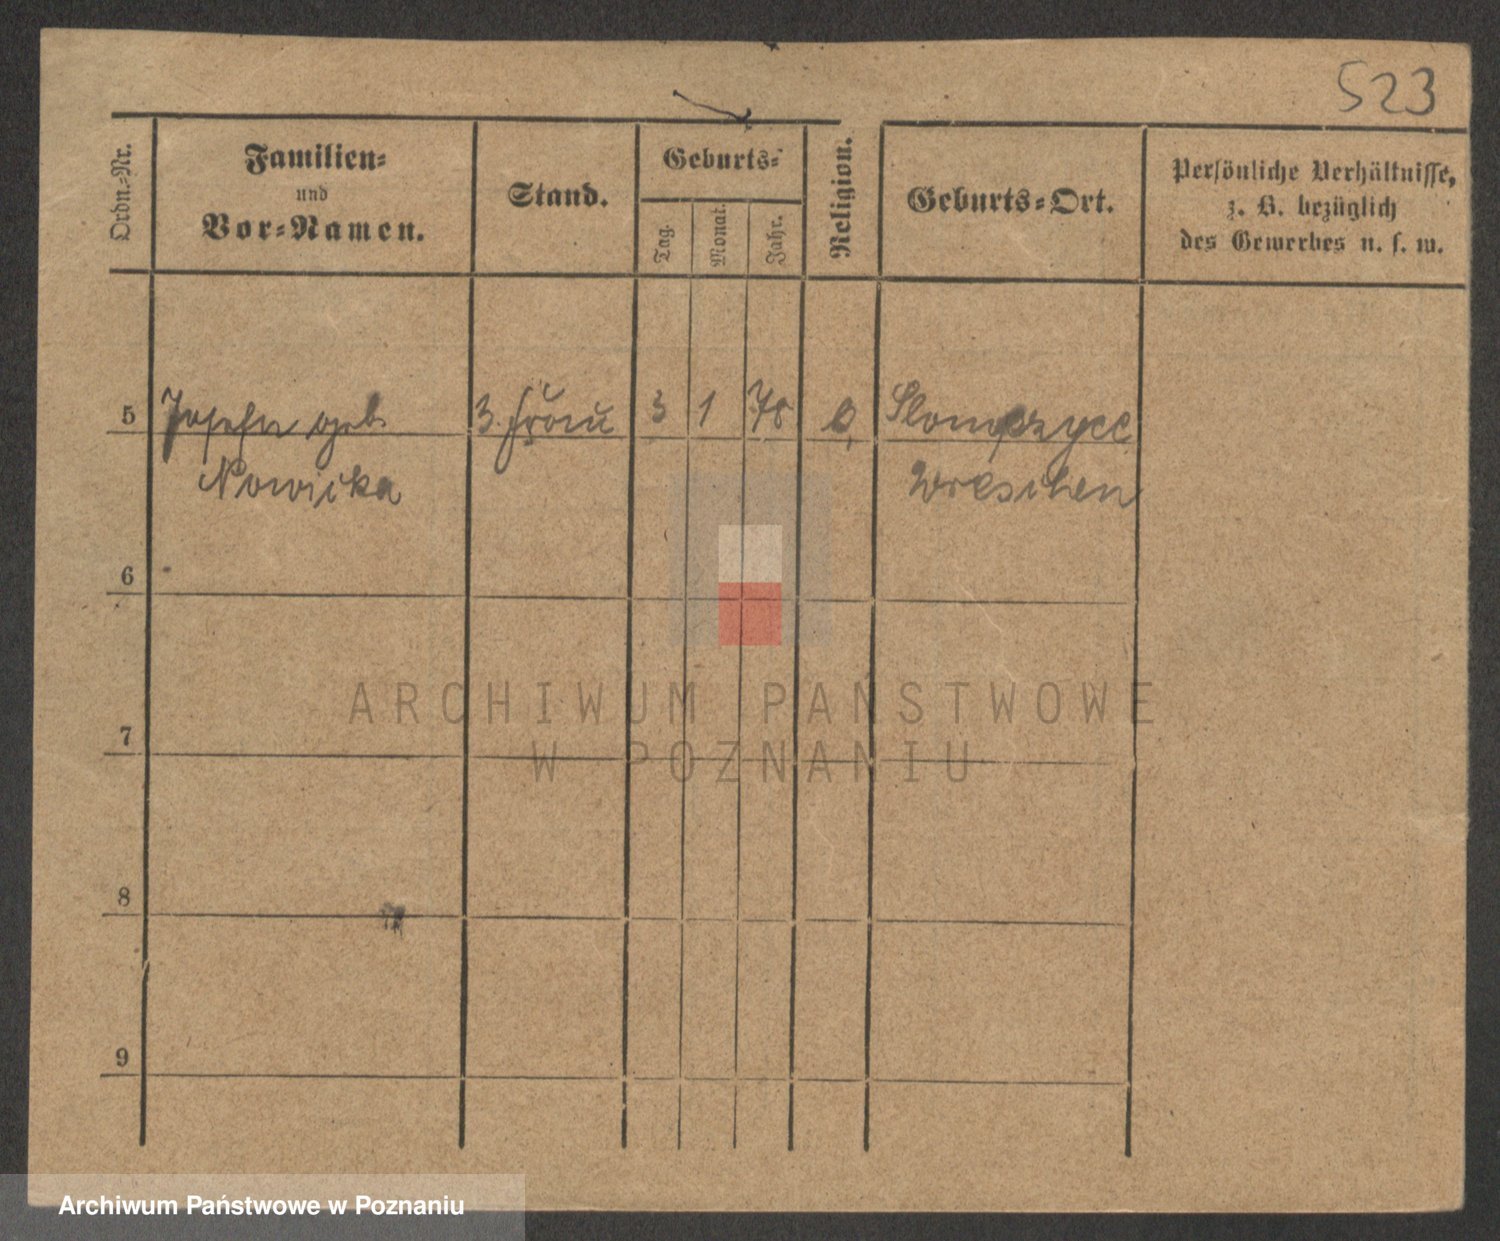 523
Ordn.-Nr.
Familien-
und
Vor-Namen.
Stand.
Geburts-
Tag.
Monat.
Jahr.
Religion.
Geburts-Ort.
Persönliche Verhältnisse,
z. B. bezüglich
des Gewerbes u. s. w.
5 Josefa geb. 3. Frau 3 1 78
Nowicka Wreschen
6
7
8
9
ARCHIWUM PAŃSTWOWE
W POZNANIU
Archiwum Państwowe w Poznaniu